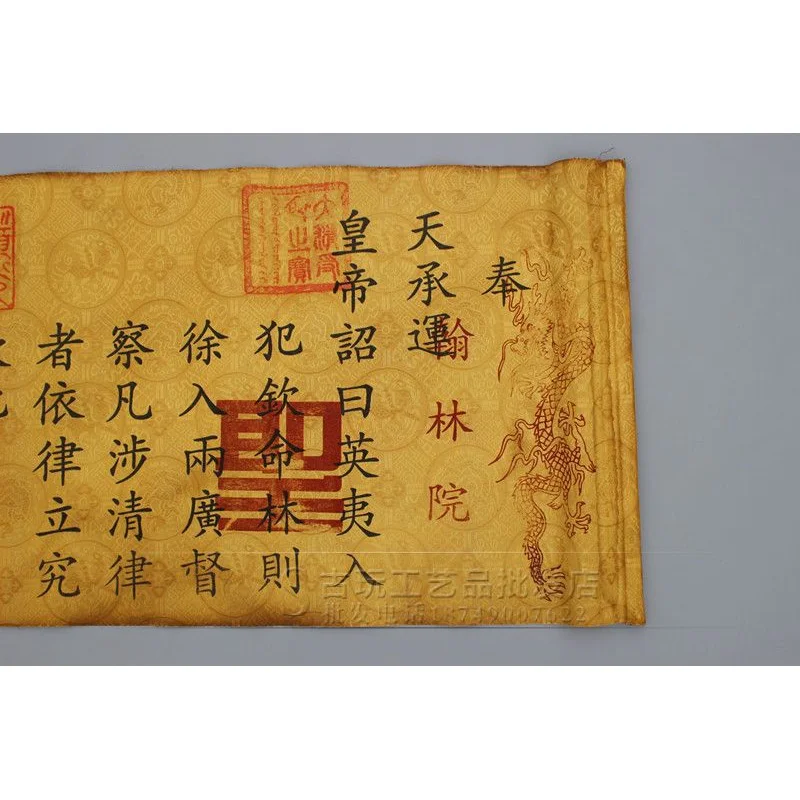 奉
天承運
皇帝詔曰英夷入
犯欽命林則
徐入兩廣督
察凡涉清律
者依律立究
翰林院
古玩工艺品批发店
批发电话18739007622